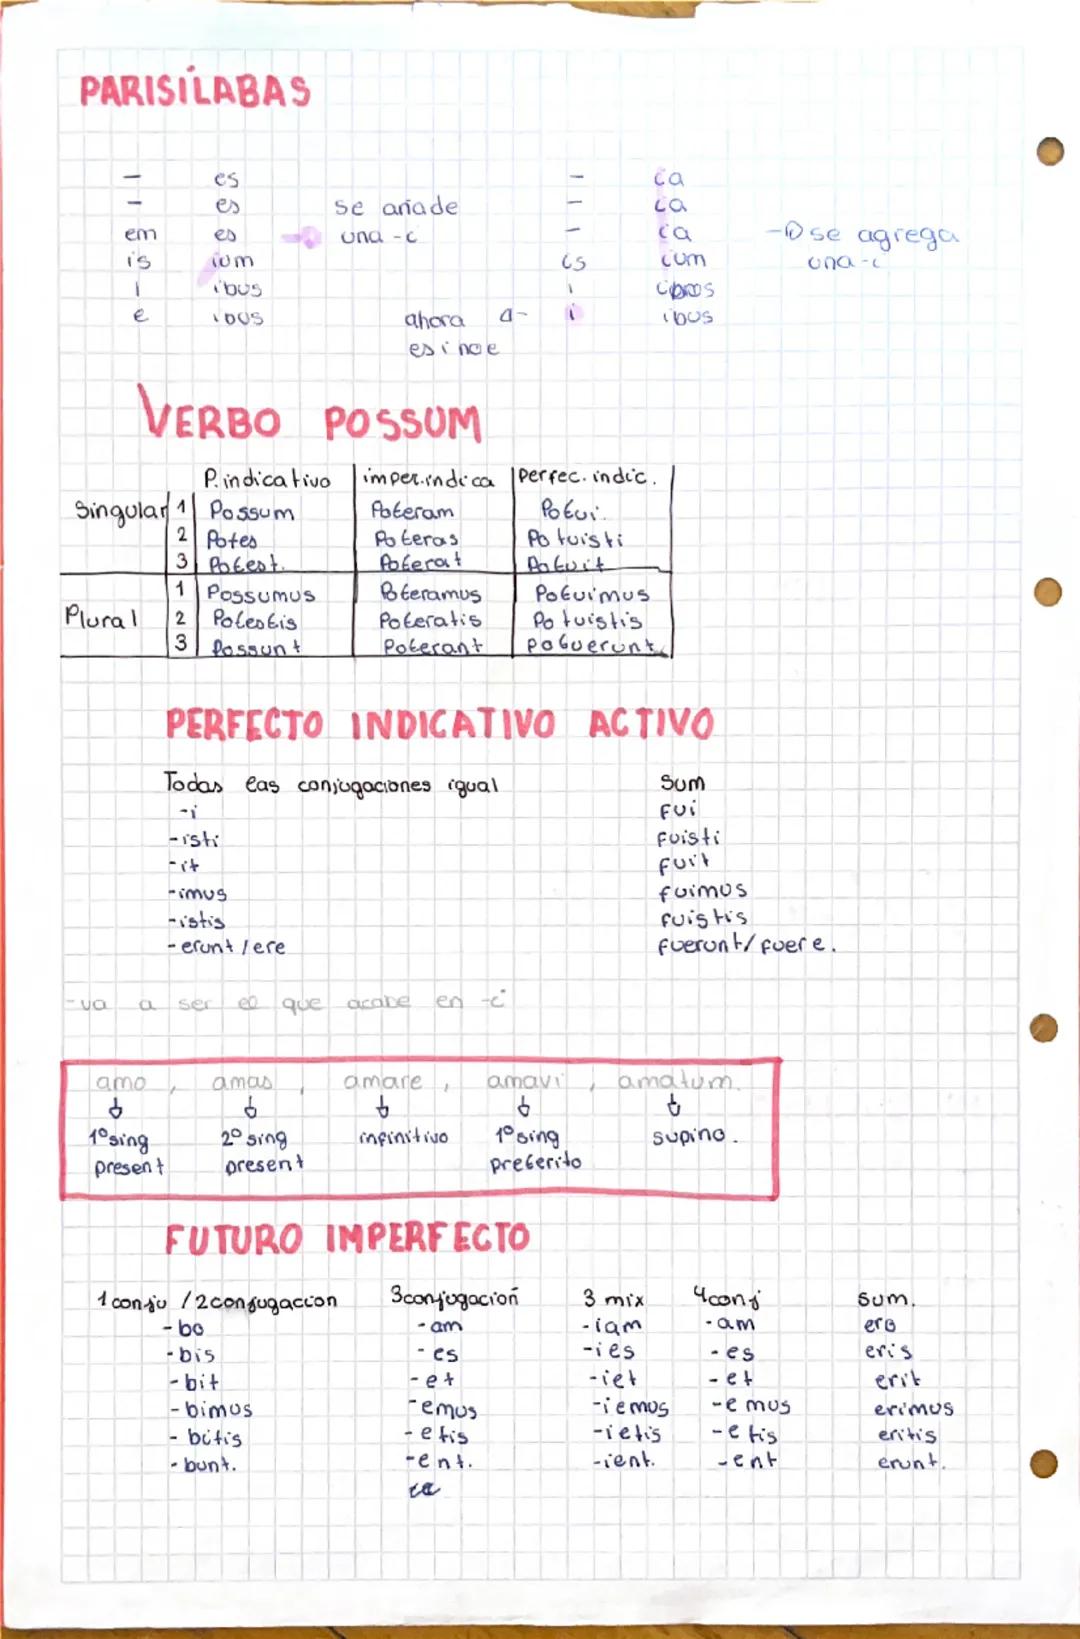 PARISÍLABAS
- es - ca
- es se añade - ca
em es una -c - ca se agrega
is ium is ium una -i
i ibus i
e ibus ahora a- i ibus
es i no e
VERBO POSSUM
P. indicativo imper.indica perfec. indic.
Singular 1 Possum Poteram Potui.
2 Potes Poteras Potuisti
3 Potest. Poterat Potuit
Plural 1 Possumus Poteramus Potuimus
2 Potestis Poteratis Potuistis
3 Possunt Poterant potuerunt
PERFECTO INDICATIVO ACTIVO
Todas las conjugaciones igual Sum
-i fui
-isti fuisti
-it fuit
-imus fuimus
-istis fuistis
-erunt/ere fuerunt/fuere.
-va a ser el que acabe en -i
amo, amas, amare, amavi, amatum.
1º sing 2º sing infinitivo 1º sing supino.
present present preterito
FUTURO IMPERFECTO
1 conju / 2 conjugacion 3 conjugación 3 mix 4 conj sum.
-bo -am -iam -am ero
-bis -es -ies -es eris
-bit -et -iet -et erit
-bimus -emus -iemus -emus erimus
-bitis -etis -ietis -etis eritis
-bunt. -ent. -ient. -ent erunt.